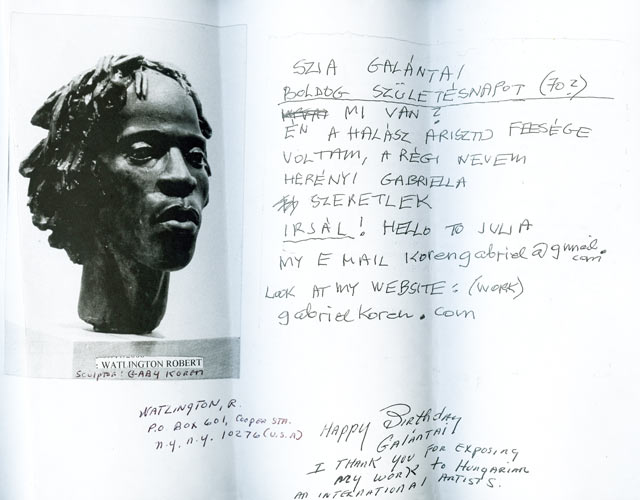 SZIA GALÁNTAI
BOLDOG SZÜLETÉSNAPOT (70?)
MI VAN?
ÉN A HALÁSZ ARISZTID FEESÉGE
VOLTAM, A RÉGI NEVEM
HERÉNYI GABRIELLA
SZERETLEK
IRJÁL! HELLO TO JULIA
MY E MAIL korengabriel@gmail.com
LOOK AT MY WEBSITE: (WORK)
gabrielkoren.com
: WATLINGTON ROBERT
SCULPTOR: GABY KOREN
WATLINGTON, R.
P.O BOX 601, COOPER STA.
N.Y. N.Y. 10276 (U.S.A)
HAPPY Birthday
GALÁNTAI
I THANK YOU FOR EXPOSING
MY WORK to HUNGARIAN
AN INTERNATIONAL ARTISTS.